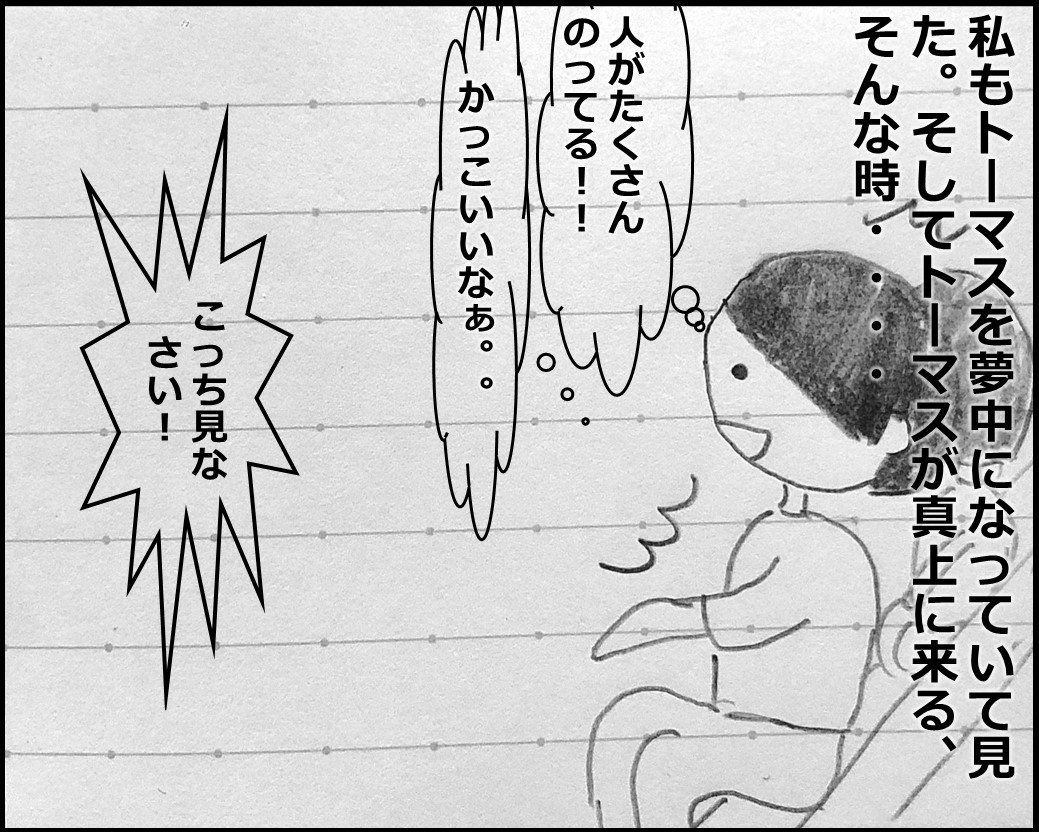 私もトーマスを夢中になっていて見
た。そしてトーマスが真上に来る、
そんな時・・・・
人がたくさん
のってる！！
かっこいいなぁ。。
こっち見な
さい！